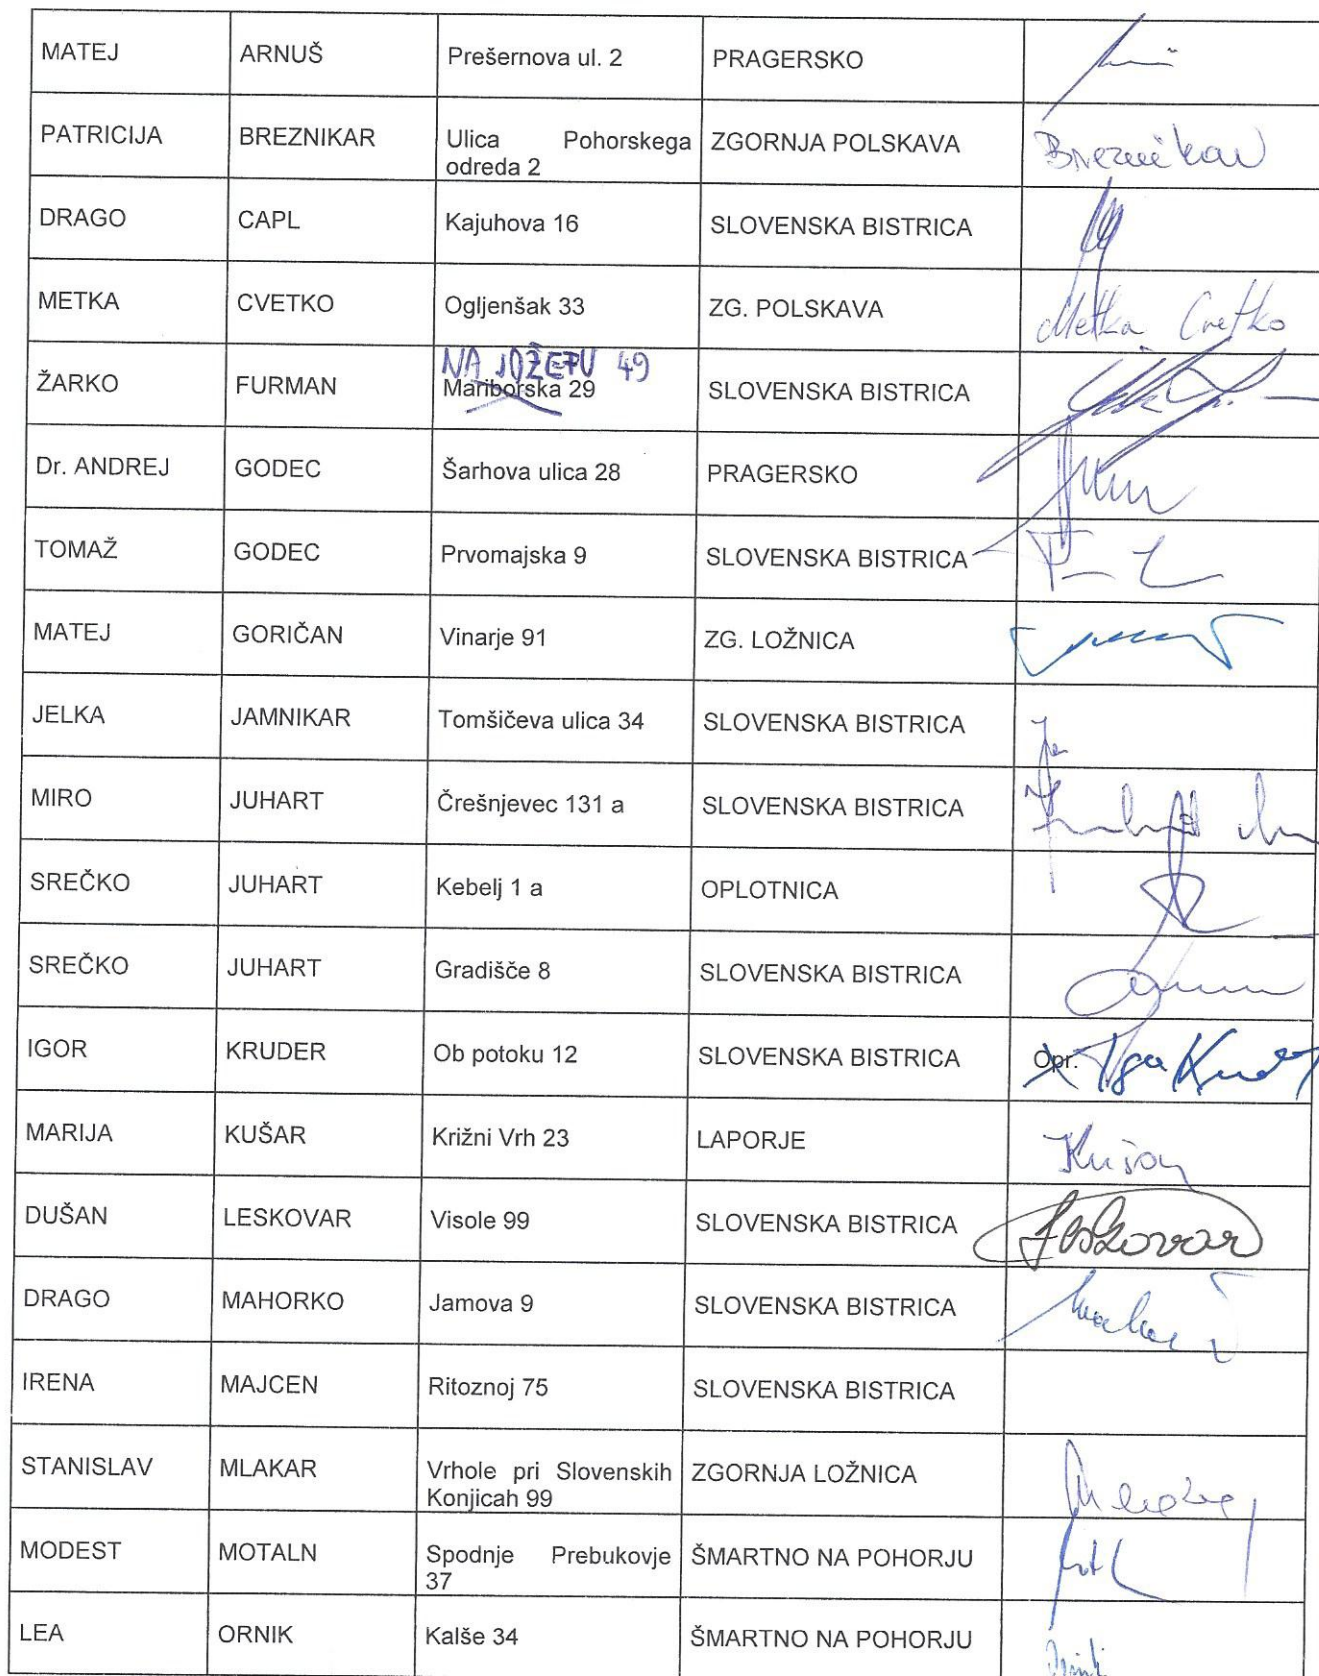 MATEJ ARNUŠ Prešernova ul. 2 PRAGERSKO
PATRICIJA BREZNIKAR Ulica Pohorskega ZGORNJA POLSKAVA Breznikar
odreda 2
DRAGO CAPL Kajuhova 16 SLOVENSKA BISTRICA
METKA CVETKO Ogljenšak 33 ZG. POLSKAVA Metka Cvetko
NA JOŽEFU 49
ŽARKO FURMAN Mariborska 29 SLOVENSKA BISTRICA
Dr. ANDREJ GODEC Šarhova ulica 28 PRAGERSKO
TOMAŽ GODEC Prvomajska 9 SLOVENSKA BISTRICA
MATEJ GORIČAN Vinarje 91 ZG. LOŽNICA
JELKA JAMNIKAR Tomšičeva ulica 34 SLOVENSKA BISTRICA
MIRO JUHART Črešnjevec 131 a SLOVENSKA BISTRICA
SREČKO JUHART Kebelj 1 a OPLOTNICA
SREČKO JUHART Gradišče 8 SLOVENSKA BISTRICA
IGOR KRUDER Ob potoku 12 SLOVENSKA BISTRICA Opr.
MARIJA KUŠAR Križni Vrh 23 LAPORJE Kušar
DUŠAN LESKOVAR Visole 99 SLOVENSKA BISTRICA Leskovar
DRAGO MAHORKO Jamova 9 SLOVENSKA BISTRICA
IRENA MAJCEN Ritoznoj 75 SLOVENSKA BISTRICA
STANISLAV MLAKAR Vrhole pri Slovenskih ZGORNJA LOŽNICA
Konjicah 99
MODEST MOTALN Spodnje Prebukovje ŠMARTNO NA POHORJU
37
LEA ORNIK Kalše 34 ŠMARTNO NA POHORJU